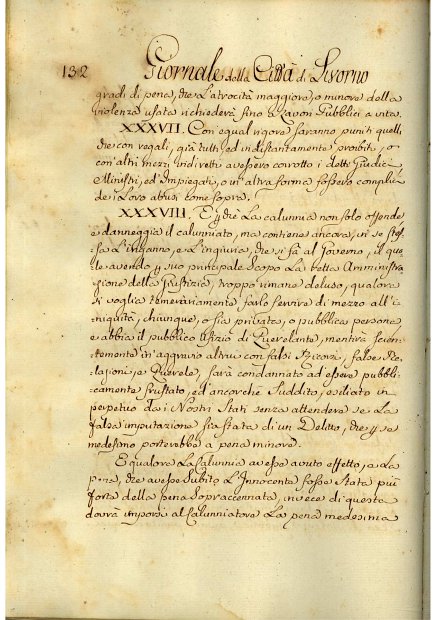 132 Giornale della Città di Livorno
gradi di pena, che l'atrocità maggiore, o minore della
violenza usata richiederà sino a Lavori Pubblici a vita.
XXXVII. Con equal rigore saranno puniti quelli,
che con regali, già tutti, ed indistantamente proibiti, o
con altri mezzi indiretti avessero corrotto i detti Giudici
Ministri, ed Impiegati, o in altra forma fossero complici
dei Loro abusi come sopra.
XXXVIII. E perchè La calunnia non solo offende,
e danneggia il calunniato, ma contiene ancora in se stes-
sa L'inganno, e L'ingiuria, che si fà al Governo, il qua-
le avendo per suo principale Scopo La retta Amministra-
zione della Giustizia, troppo rimane deluso, qualora
si voglia temerariamente farlo servire di mezzo all'i-
niquità, chiunque, o sia privata, o pubblica persona
e abbia il pubblico Ufizio di Querelante, mentirà scien-
temente in aggravio altrui con falsi Ricorsi, false Re-
lazioni, e Querele, sarà condannato ad essere pubbli-
camente frustato, ed ancorchè Suddito, esiliato in
perpetuo dai Nostri Stati senza attendere se La
falsa imputazione sia stata di un Delitto, che per se
medesimo porterebbe a pena minore.
E qualora La Calunnia avesse avuto effetto, e La
pena, che avesse Subito L'Innocente fosse Stata più
forte della pena Sopraccennata, invece di questa
dovrà imporsi al Calunniatore La pena medesima